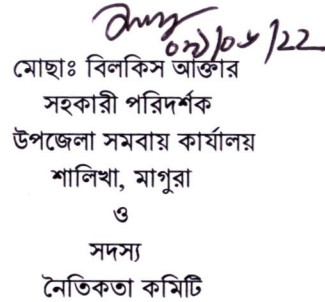 ০১/০৬/22
মোছাঃ বিলকিস আক্তার
সহকারী পরিদর্শক
উপজেলা সমবায় কার্যালয়
শালিখা, মাগুরা
ও
সদস্য
নৈতিকতা কমিটি